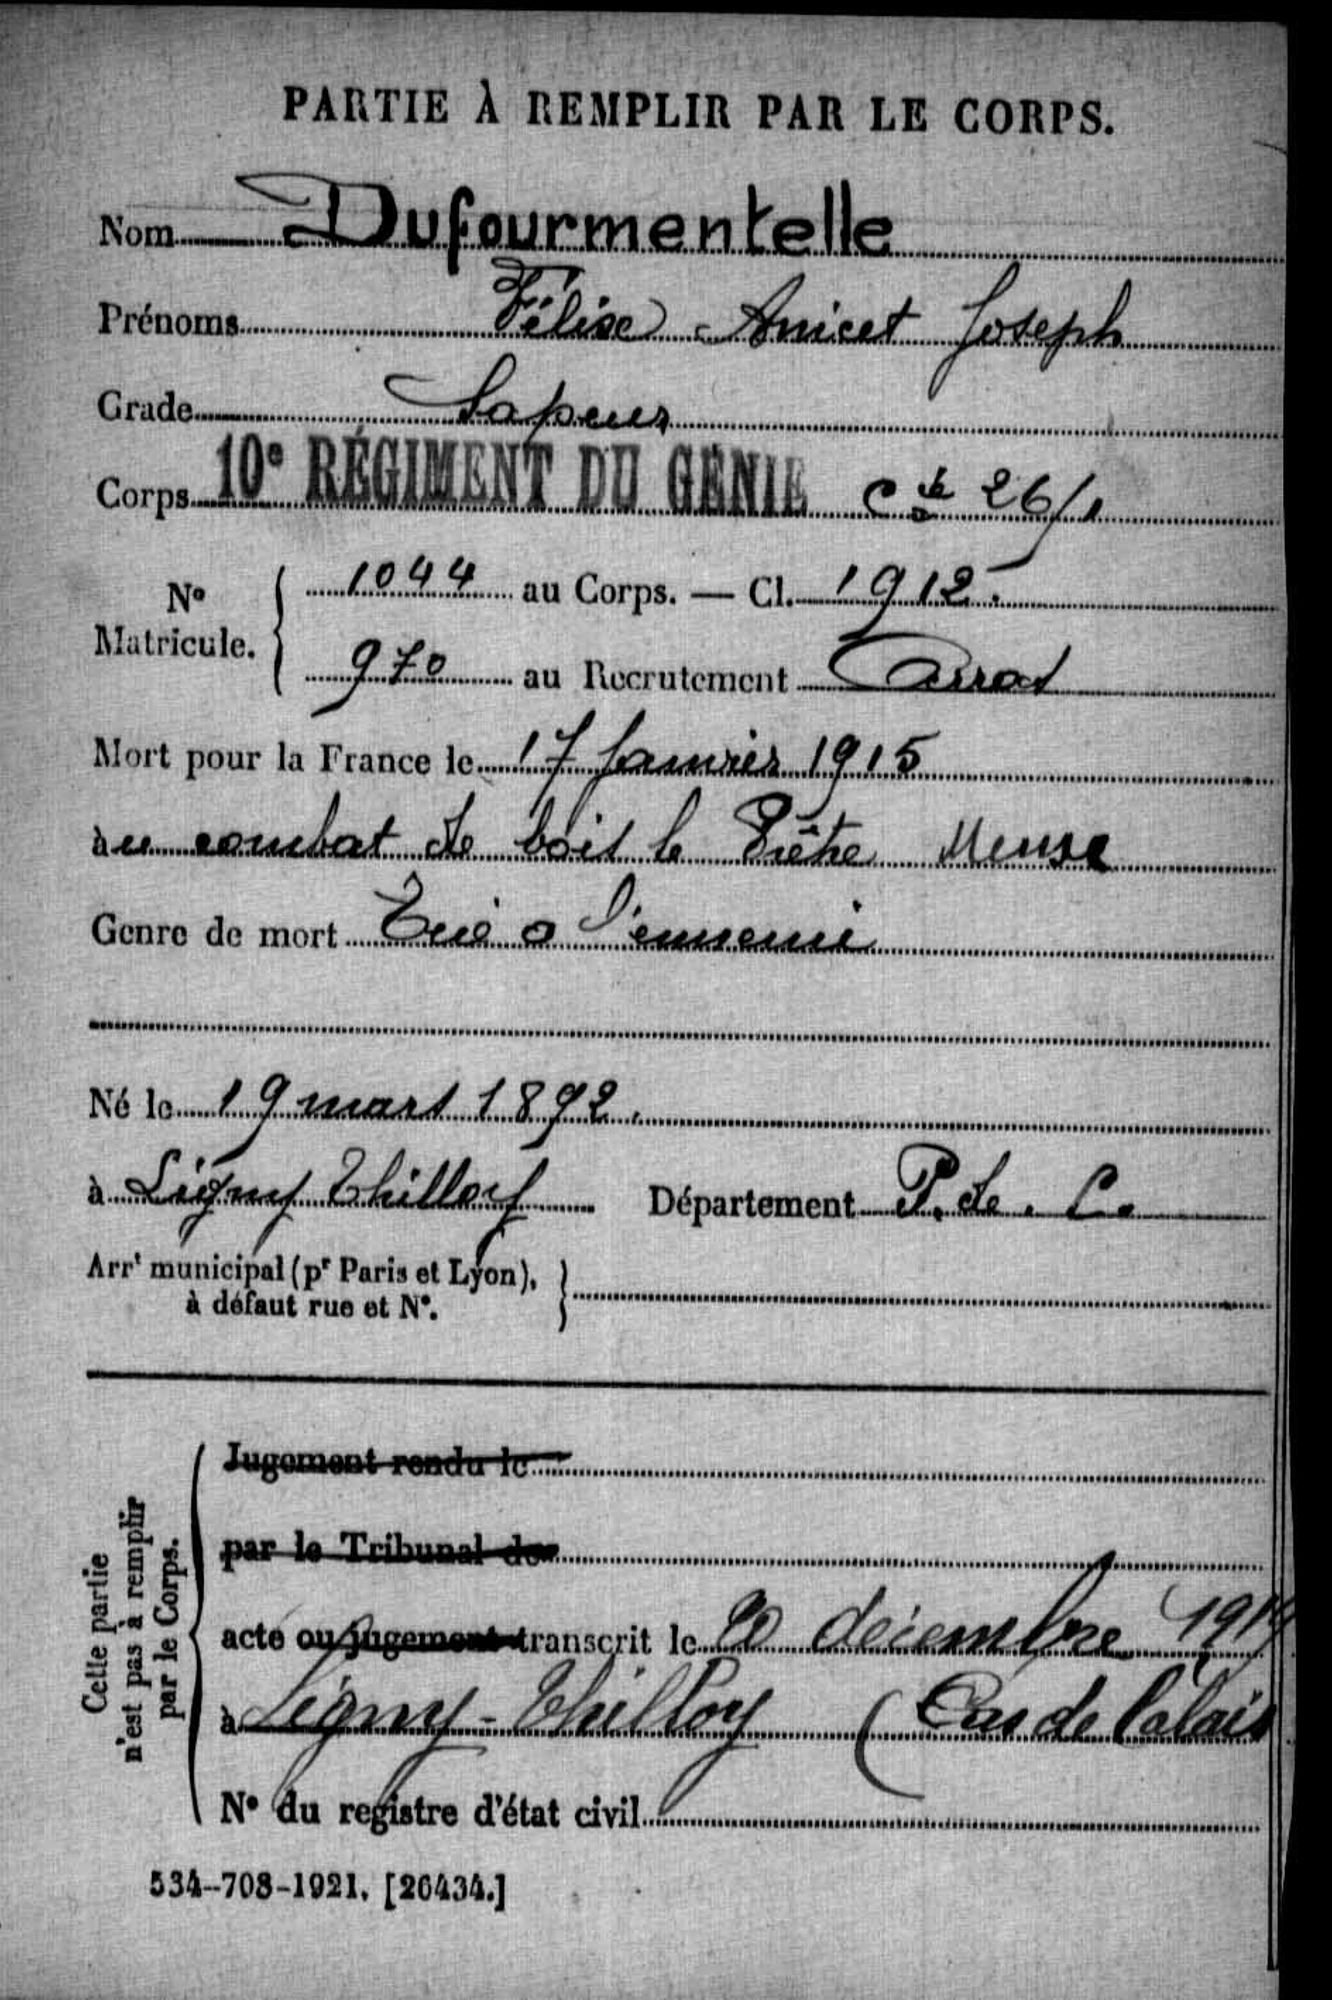 PARTIE À REMPLIR PAR LE CORPS.
Nom Dufourmentelle
Prénoms Félise Anicet Joseph
Grade Sapeur
Corps 10e RÉGIMENT DU GÉNIE Cie 26/1
No Matricule. 1044 au Corps. — Cl. 1912.
970 au Recrutement Arras
Mort pour la France le 17 Janvier 1915
au combat de bois le Prêtre Meuse
Genre de mort Tué a l'ennemi
Né le 19 mars 1892.
à Ligny Thilloy Département P. de. C.
Arrt municipal (pr Paris et Lyon),
à défaut rue et No.
Cette partie n'est pas à remplir par le Corps.
Jugement rendu le
par le Tribunal de
acte ou jugement transcrit le décembre
à Ligny-Thilloy (Pas de Calais
No du registre d'état civil
534-708-1921. [26434.]